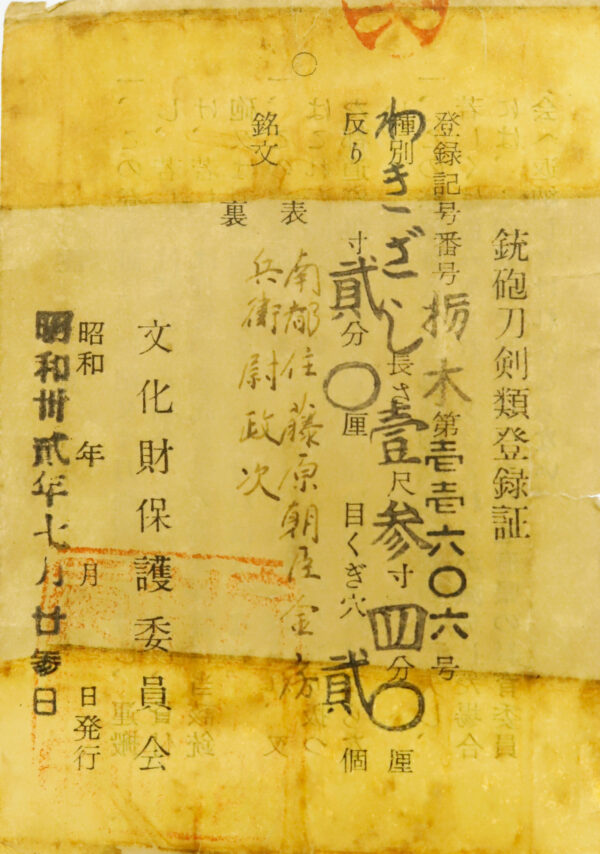 銃砲刀剣類登録証
登録記号番号 栃木 第壱壱六〇六号
種別 わきざし 長さ 壱尺参寸四分〇厘
反り 寸貳分〇厘 目くぎ穴 貳個
銘文 表 南都住藤原朝臣金房
裏 兵衛尉政次
文化財保護委員会
昭和 年 月 日発行
昭和卅貮年七月廿参日